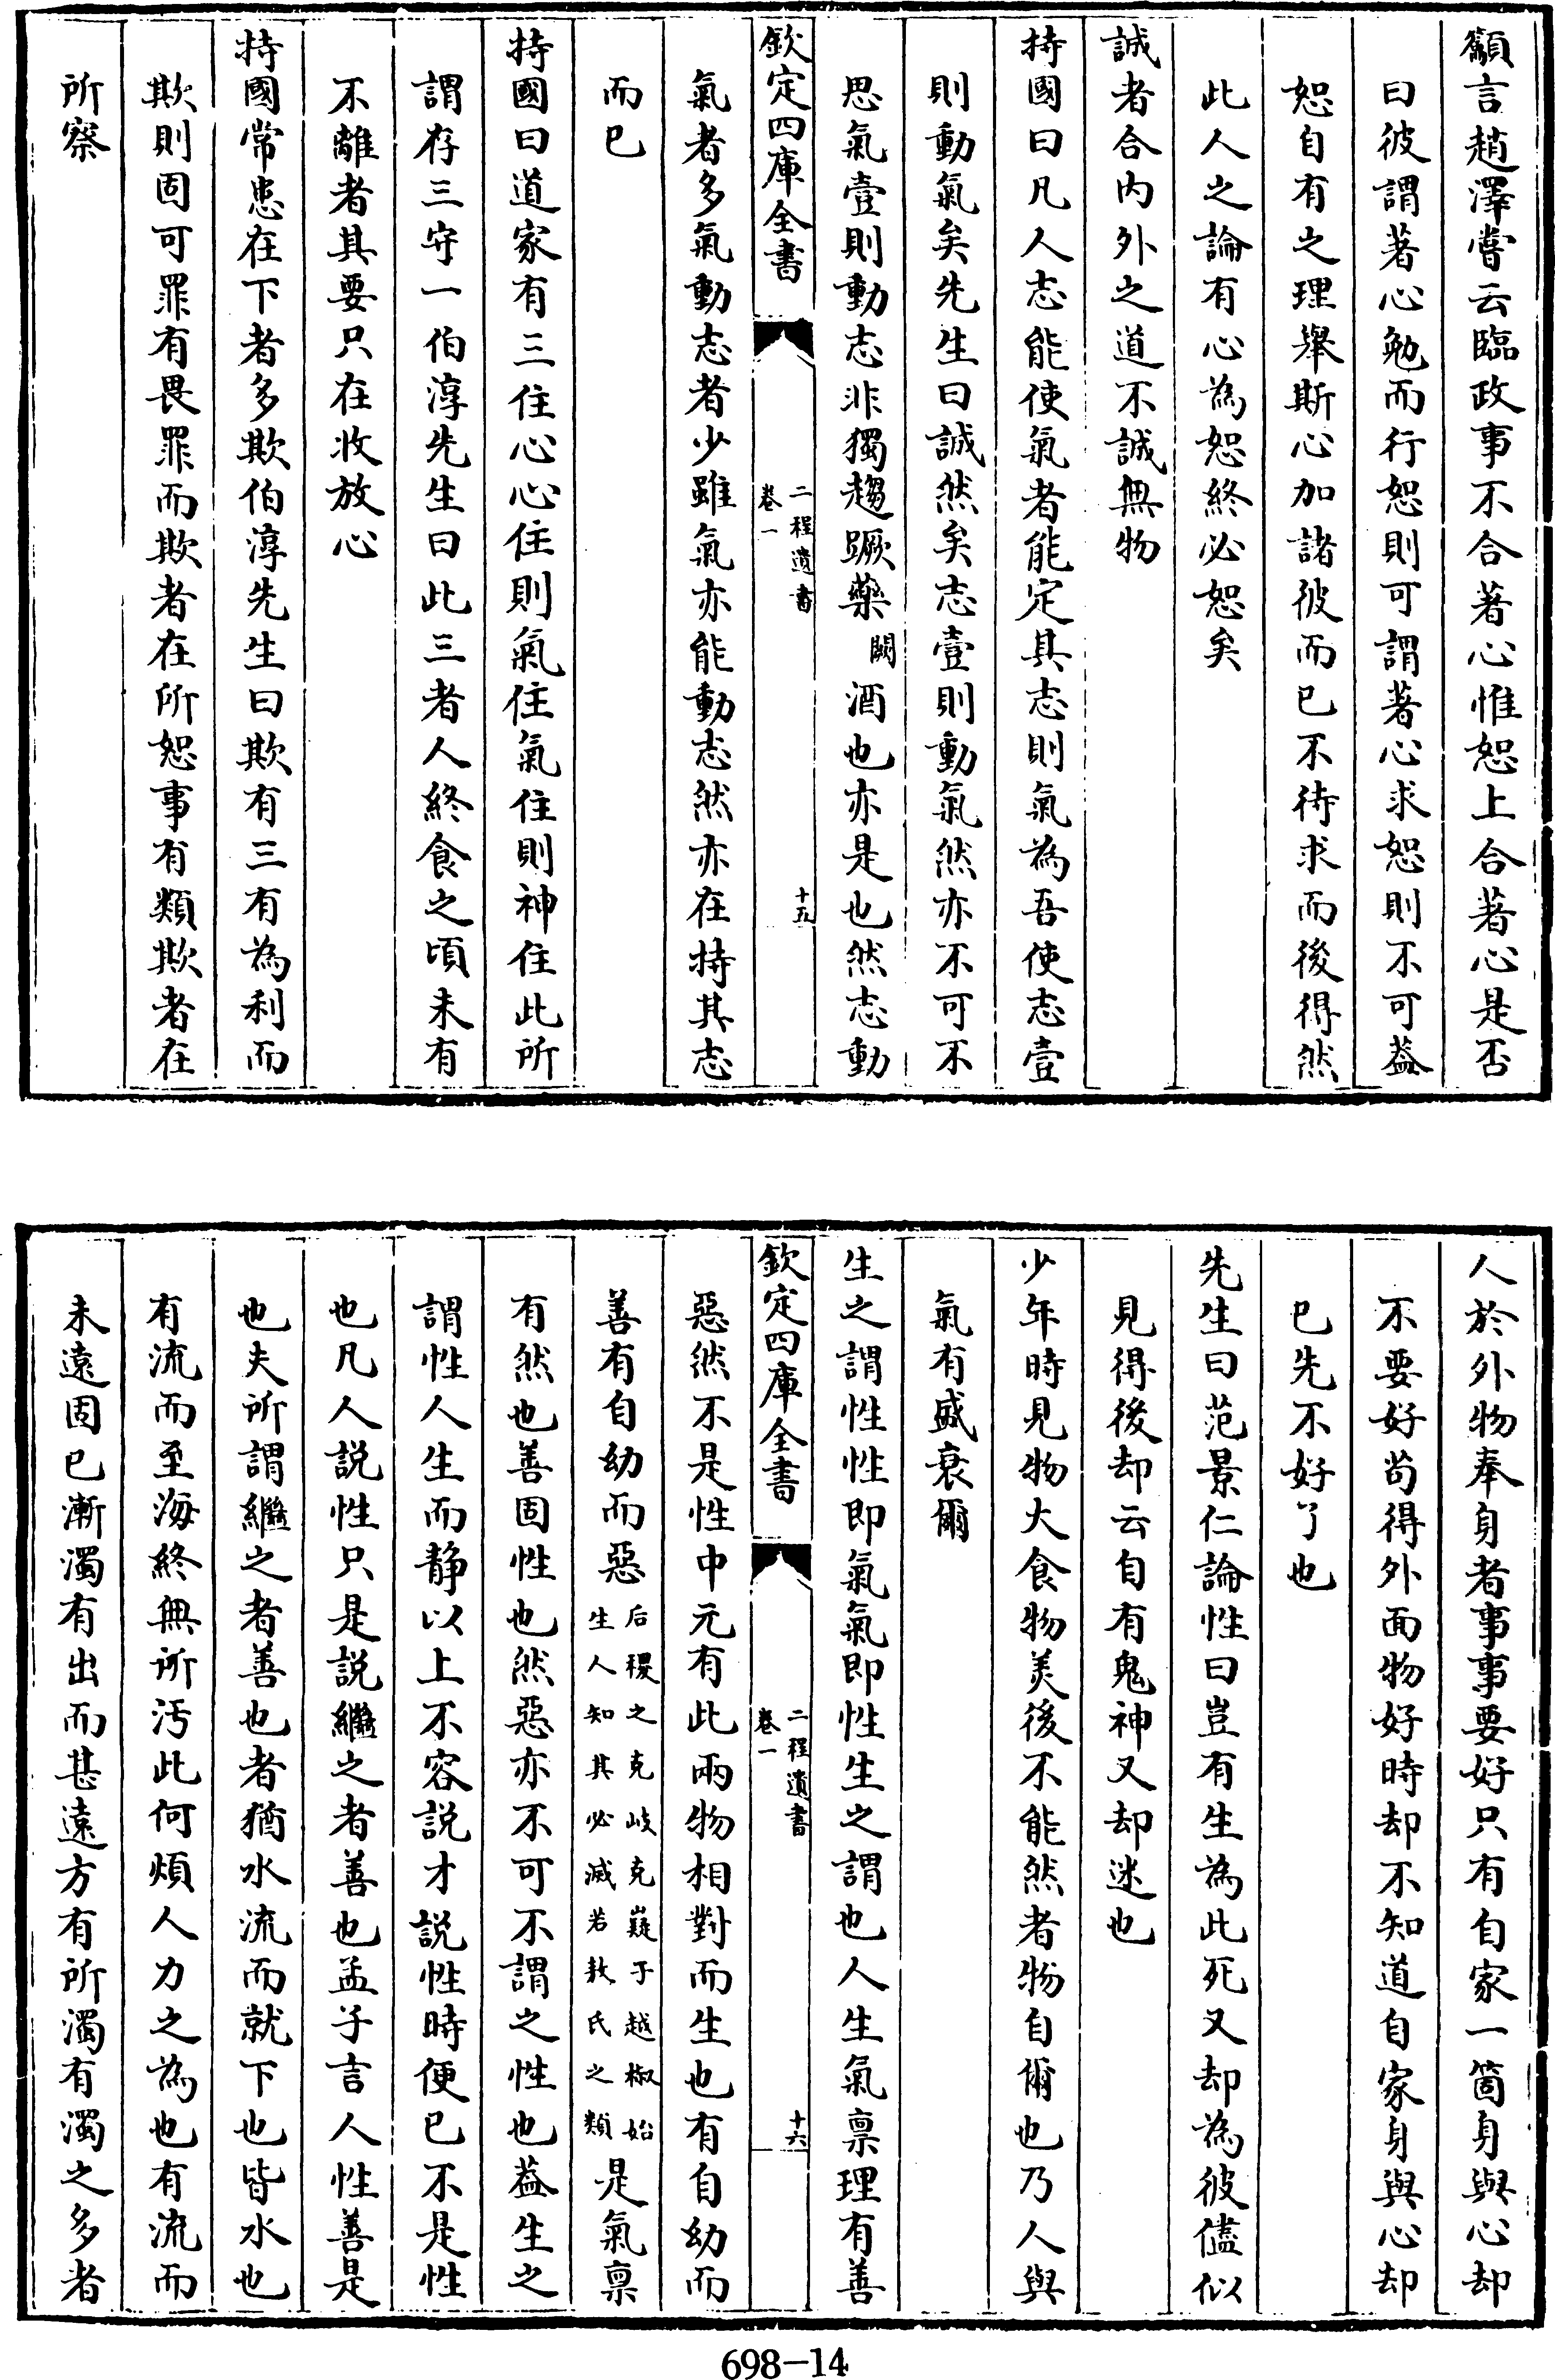 籲言趙澤嘗云臨政事不合著心惟恕上合著心是否
曰彼謂著心勉而行恕則可謂著心求恕則不可蓋
恕自有之理舉斯心加諸彼而已不待求而後得然
此人之論有心為恕終必恕矣
誠者合内外之道不誠無物
持國曰凡人志能使氣者能定其志則氣為吾使志壹
則動氣矣先生曰誠然矣志壹則動氣然亦不可不
思氣壹則動志非獨趨蹶藥闕酒也亦是也然志動
欽定四庫全書
二程遺書
卷一
十五
氣者多氣動志者少雖氣亦能動志然亦在持其志
而已
持國曰道家有三住心心住則氣住氣住則神住此所
謂存三守一伯淳先生曰此三者人終食之頃未有
不離者其要只在收放心
持國常患在下者多欺伯淳先生曰欺有三有為利而
欺則固可罪有畏罪而欺者在所恕事有類欺者在
所察
人於外物奉身者事事要好只有自家一箇身與心却
不要好苟得外面物好時却不知道自家身與心却
已先不好了也
先生曰范景仁論性曰豈有生為此死又却為彼儘似
見得後却云自有鬼神又却迷也
少年時見物大食物美後不能然者物自爾也乃人與
氣有盛衰爾
生之謂性性即氣氣即性生之謂也人生氣稟理有善
欽定四庫全書
二程遺書
卷一
十六
惡然不是性中元有此兩物相對而生也有自幼而
善有自幼而惡后稷之克岐克嶷子越椒始
生人知其必滅若敖氏之類是氣稟
有然也善固性也然惡亦不可不謂之性也蓋生之
謂性人生而静以上不容說才說性時便已不是性
也凡人說性只是說繼之者善也孟子言人性善是
也夫所謂繼之者善也者猶水流而就下也皆水也
有流而至海終無所汚此何煩人力之為也有流而
未遠固已漸濁有出而甚遠方有所濁有濁之多者
698-14